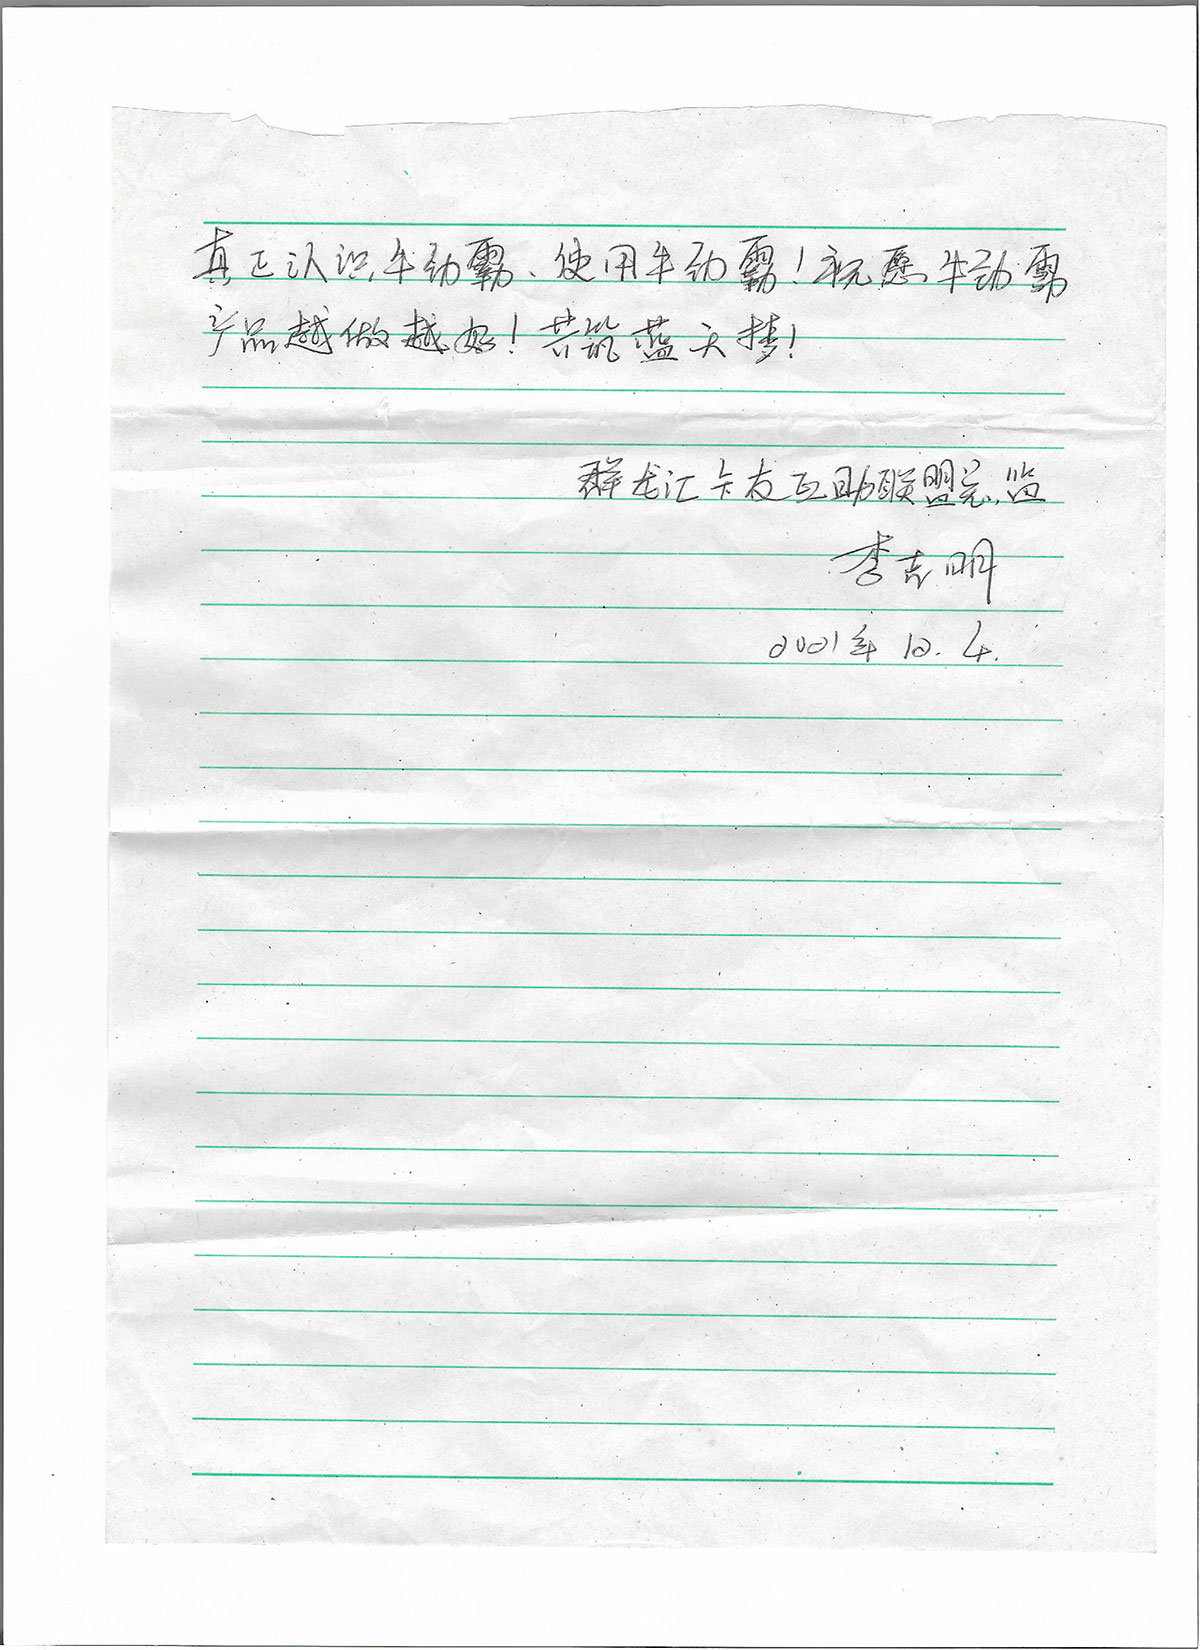 真正认识牛劲霸、使用牛劲霸！祝愿牛劲霸
产品越做越好！共筑蓝天梦！
群龙汇卡友互助联盟总监
李吉明
2021年12.4.